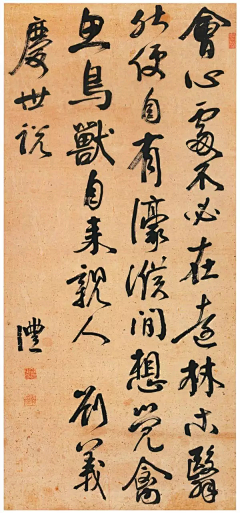 會心處不必在遠林木翳
然便自有濠濮間想覺禽
魚鳥獸自來親人 劉義
慶世說
澧